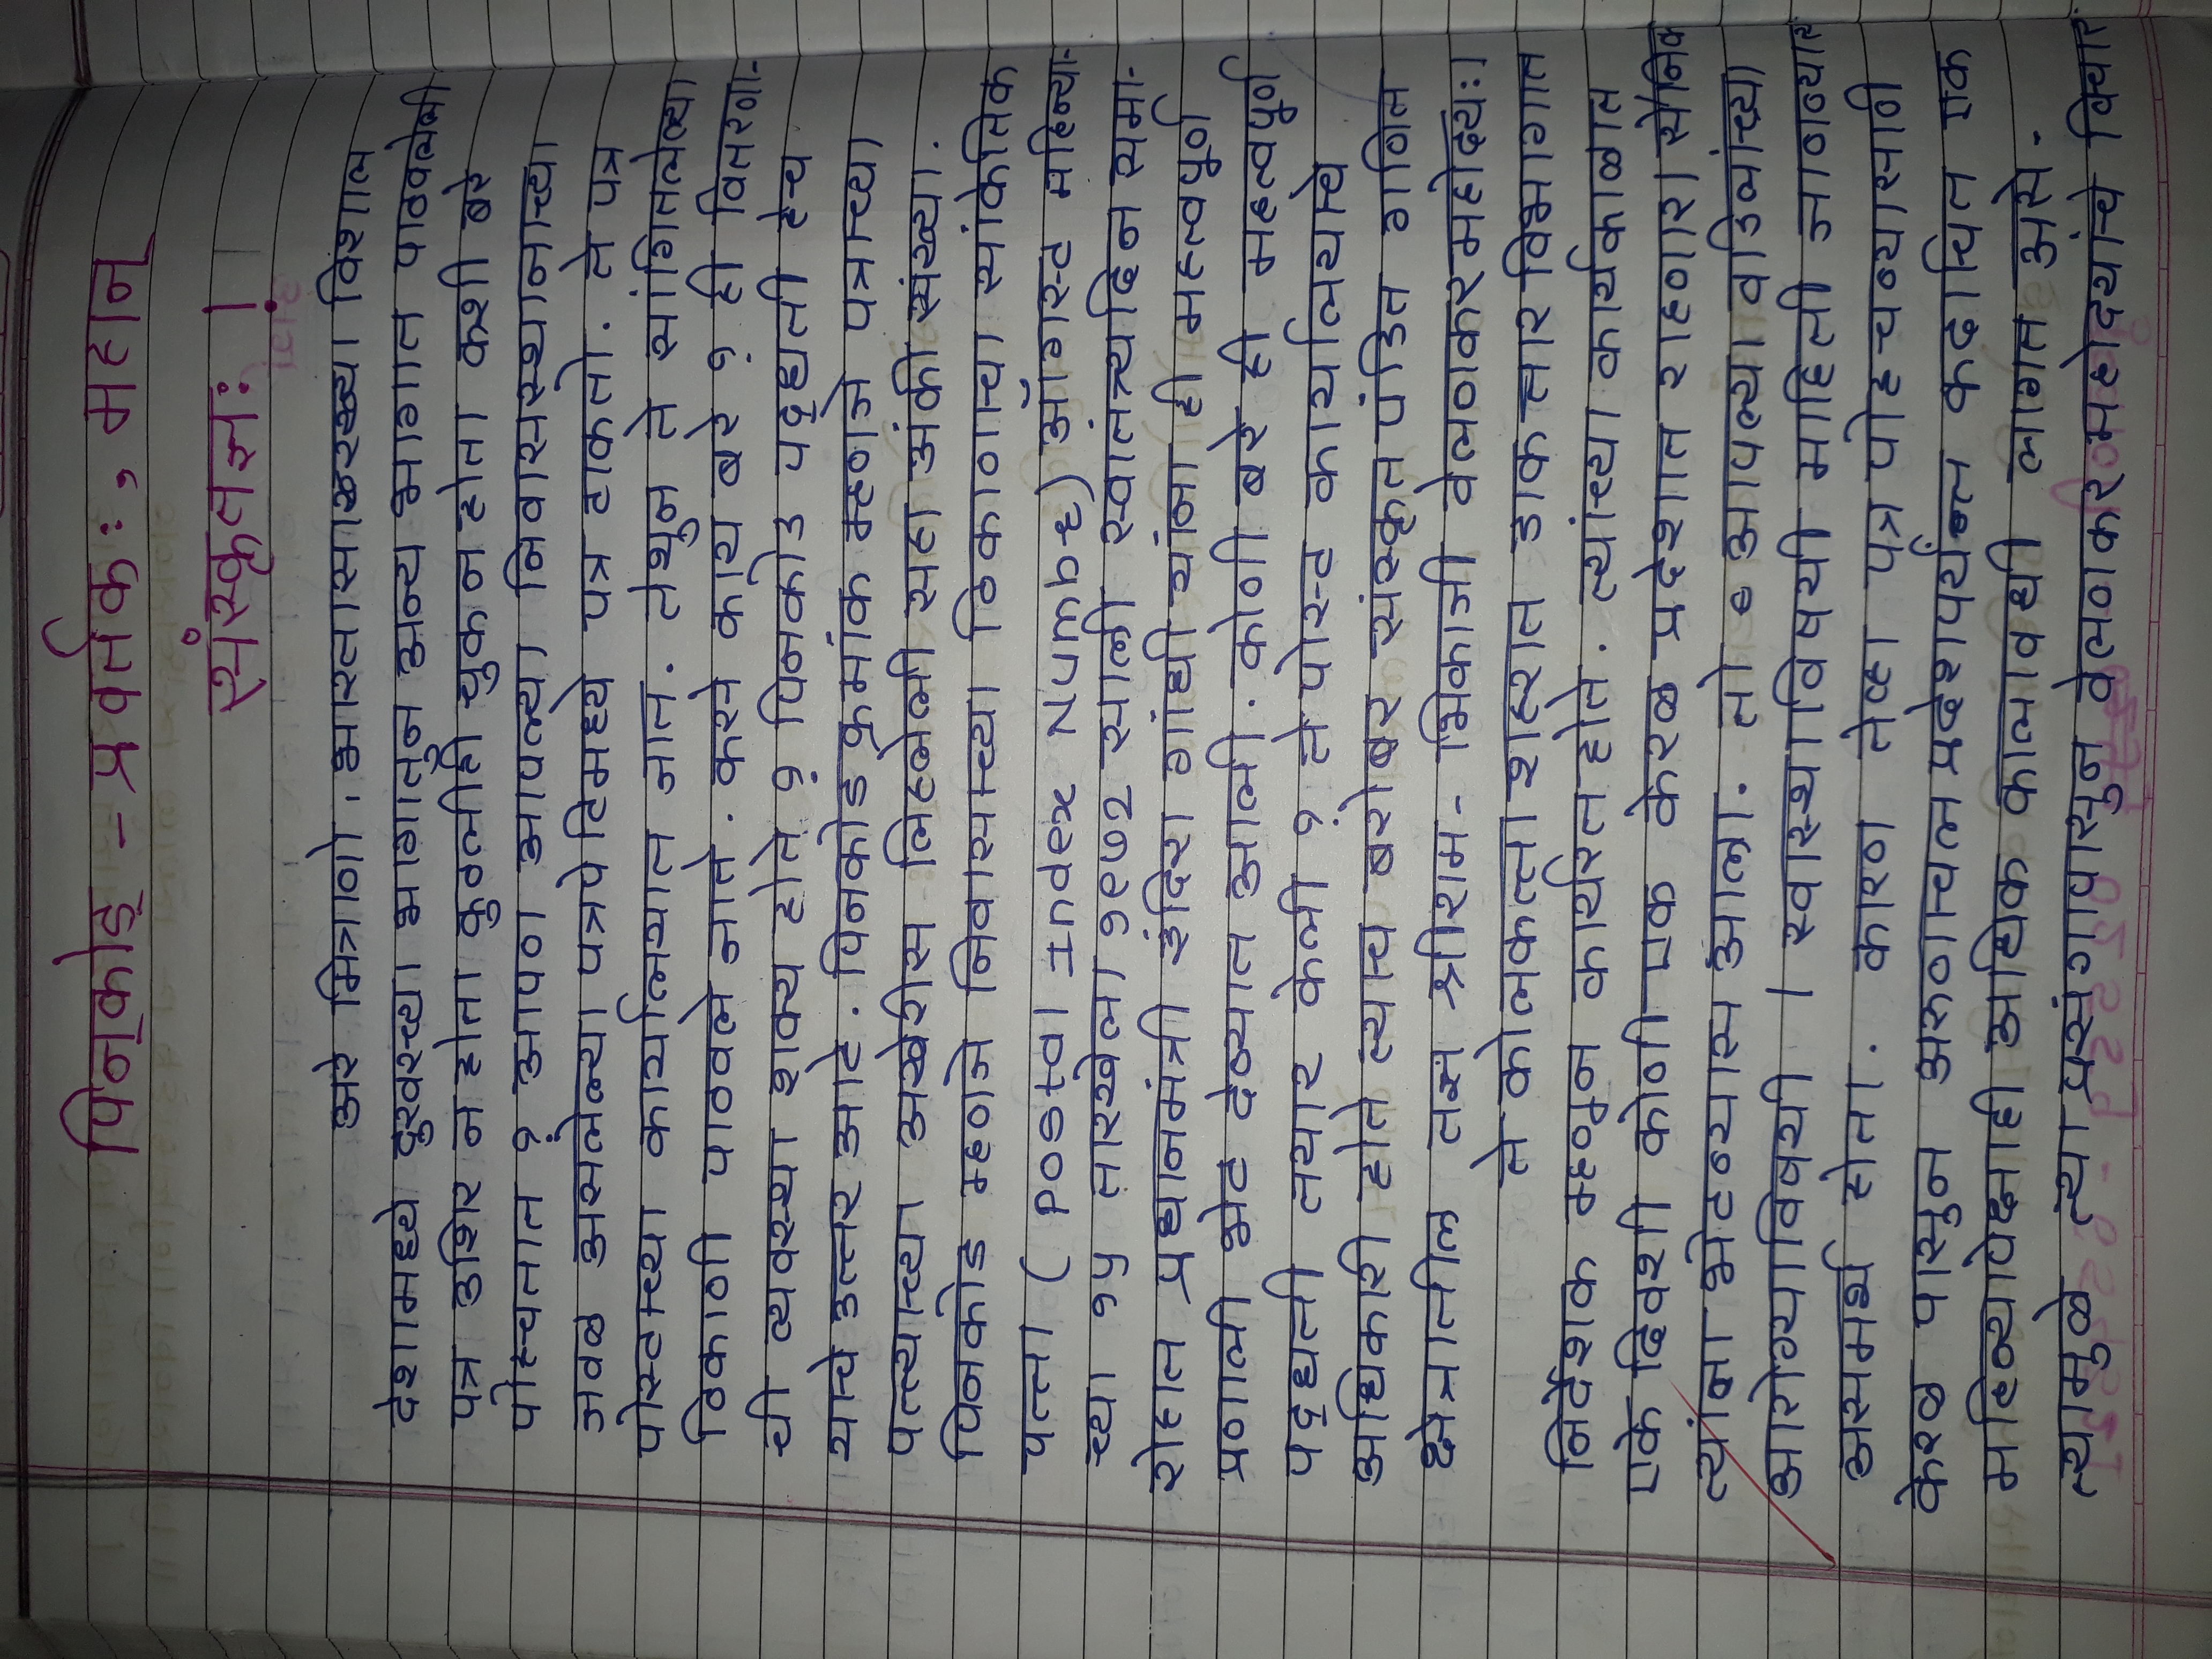 पिनकोड - प्रवर्तकः, महान
संस्कृतज्ञः ।
अरे मित्राणो. भारतासारख्या विशाल
देशामध्ये दुरवरच्या भागातून अन्य भागात पाठवलेली
पत्र उशिर न होता कुठलीही चुक न होता कशी बरे
पोहचतात ? आपण आपल्या निवासस्थानाच्या
जवळ असलेल्या पत्रपेटिमध्ये पत्र टाकतो. ते पत्र
पोस्टाच्या कार्यालयात जात. तेथुन ते सांगितलेल्या
ठिकाणी पाठवले जाते. कसे काय बरे ? ही वितरणा-
ची व्यवस्था शक्य होते ? पिनकोड पद्धती हेच
याचे उत्तर आहे. पिनकोड क्रमांक म्हणजे पत्राच्या
पत्त्याच्या अखेरीस लिहलेली सहा अंकी संख्या.
पिनकोड म्हणजे निवासाच्या ठिकाणाचा सांकेतिक
पत्ता (Postal Index Number) ऑगस्ट महिन्या-
च्या १५ तारखेला १९७२ साली स्वातंत्र्यदिन समा-
रोहात प्रधानमंत्री इंदिरा गांधी यांना ही महत्वपुर्ण
प्रणाली भेट देण्यात आली. कोणी बरे ही महत्वपुर्ण
पद्धती तयार केली ? ते पोस्ट कार्यालयाचे
अधिकारी होते त्याच बरोबर संस्कृत पंडित गणित
क्षेत्रातील तज्ञ श्रीराम - भिकाजी वेलणकरमहोदयः।
ते कोलकत्ता शहरात डाक तार विभागात
निर्देशक म्हणुन कार्यरत होते. त्यांच्या कार्यकाळात
एके दिवशी कोणी एक केरळ प्रदेशात राहणारा सैनिक
त्यांना भेटण्यास आला. तो आपल्या वडिलांच्या
आरोग्याविषयी / स्वास्थ्याविषयी माहिती जाणण्यात
असमर्थ होता. कारण तेव्हा पत्र पोहचण्यासाठी
केरळ पासुन अरुणाचल प्रदेशापर्यन्त कदाचित एक
महिन्यापेक्षाही अधिक कालावधी लागत असे.
त्यामुळे त्या प्रसंगापासुन वेलणकरमहोदयांचे